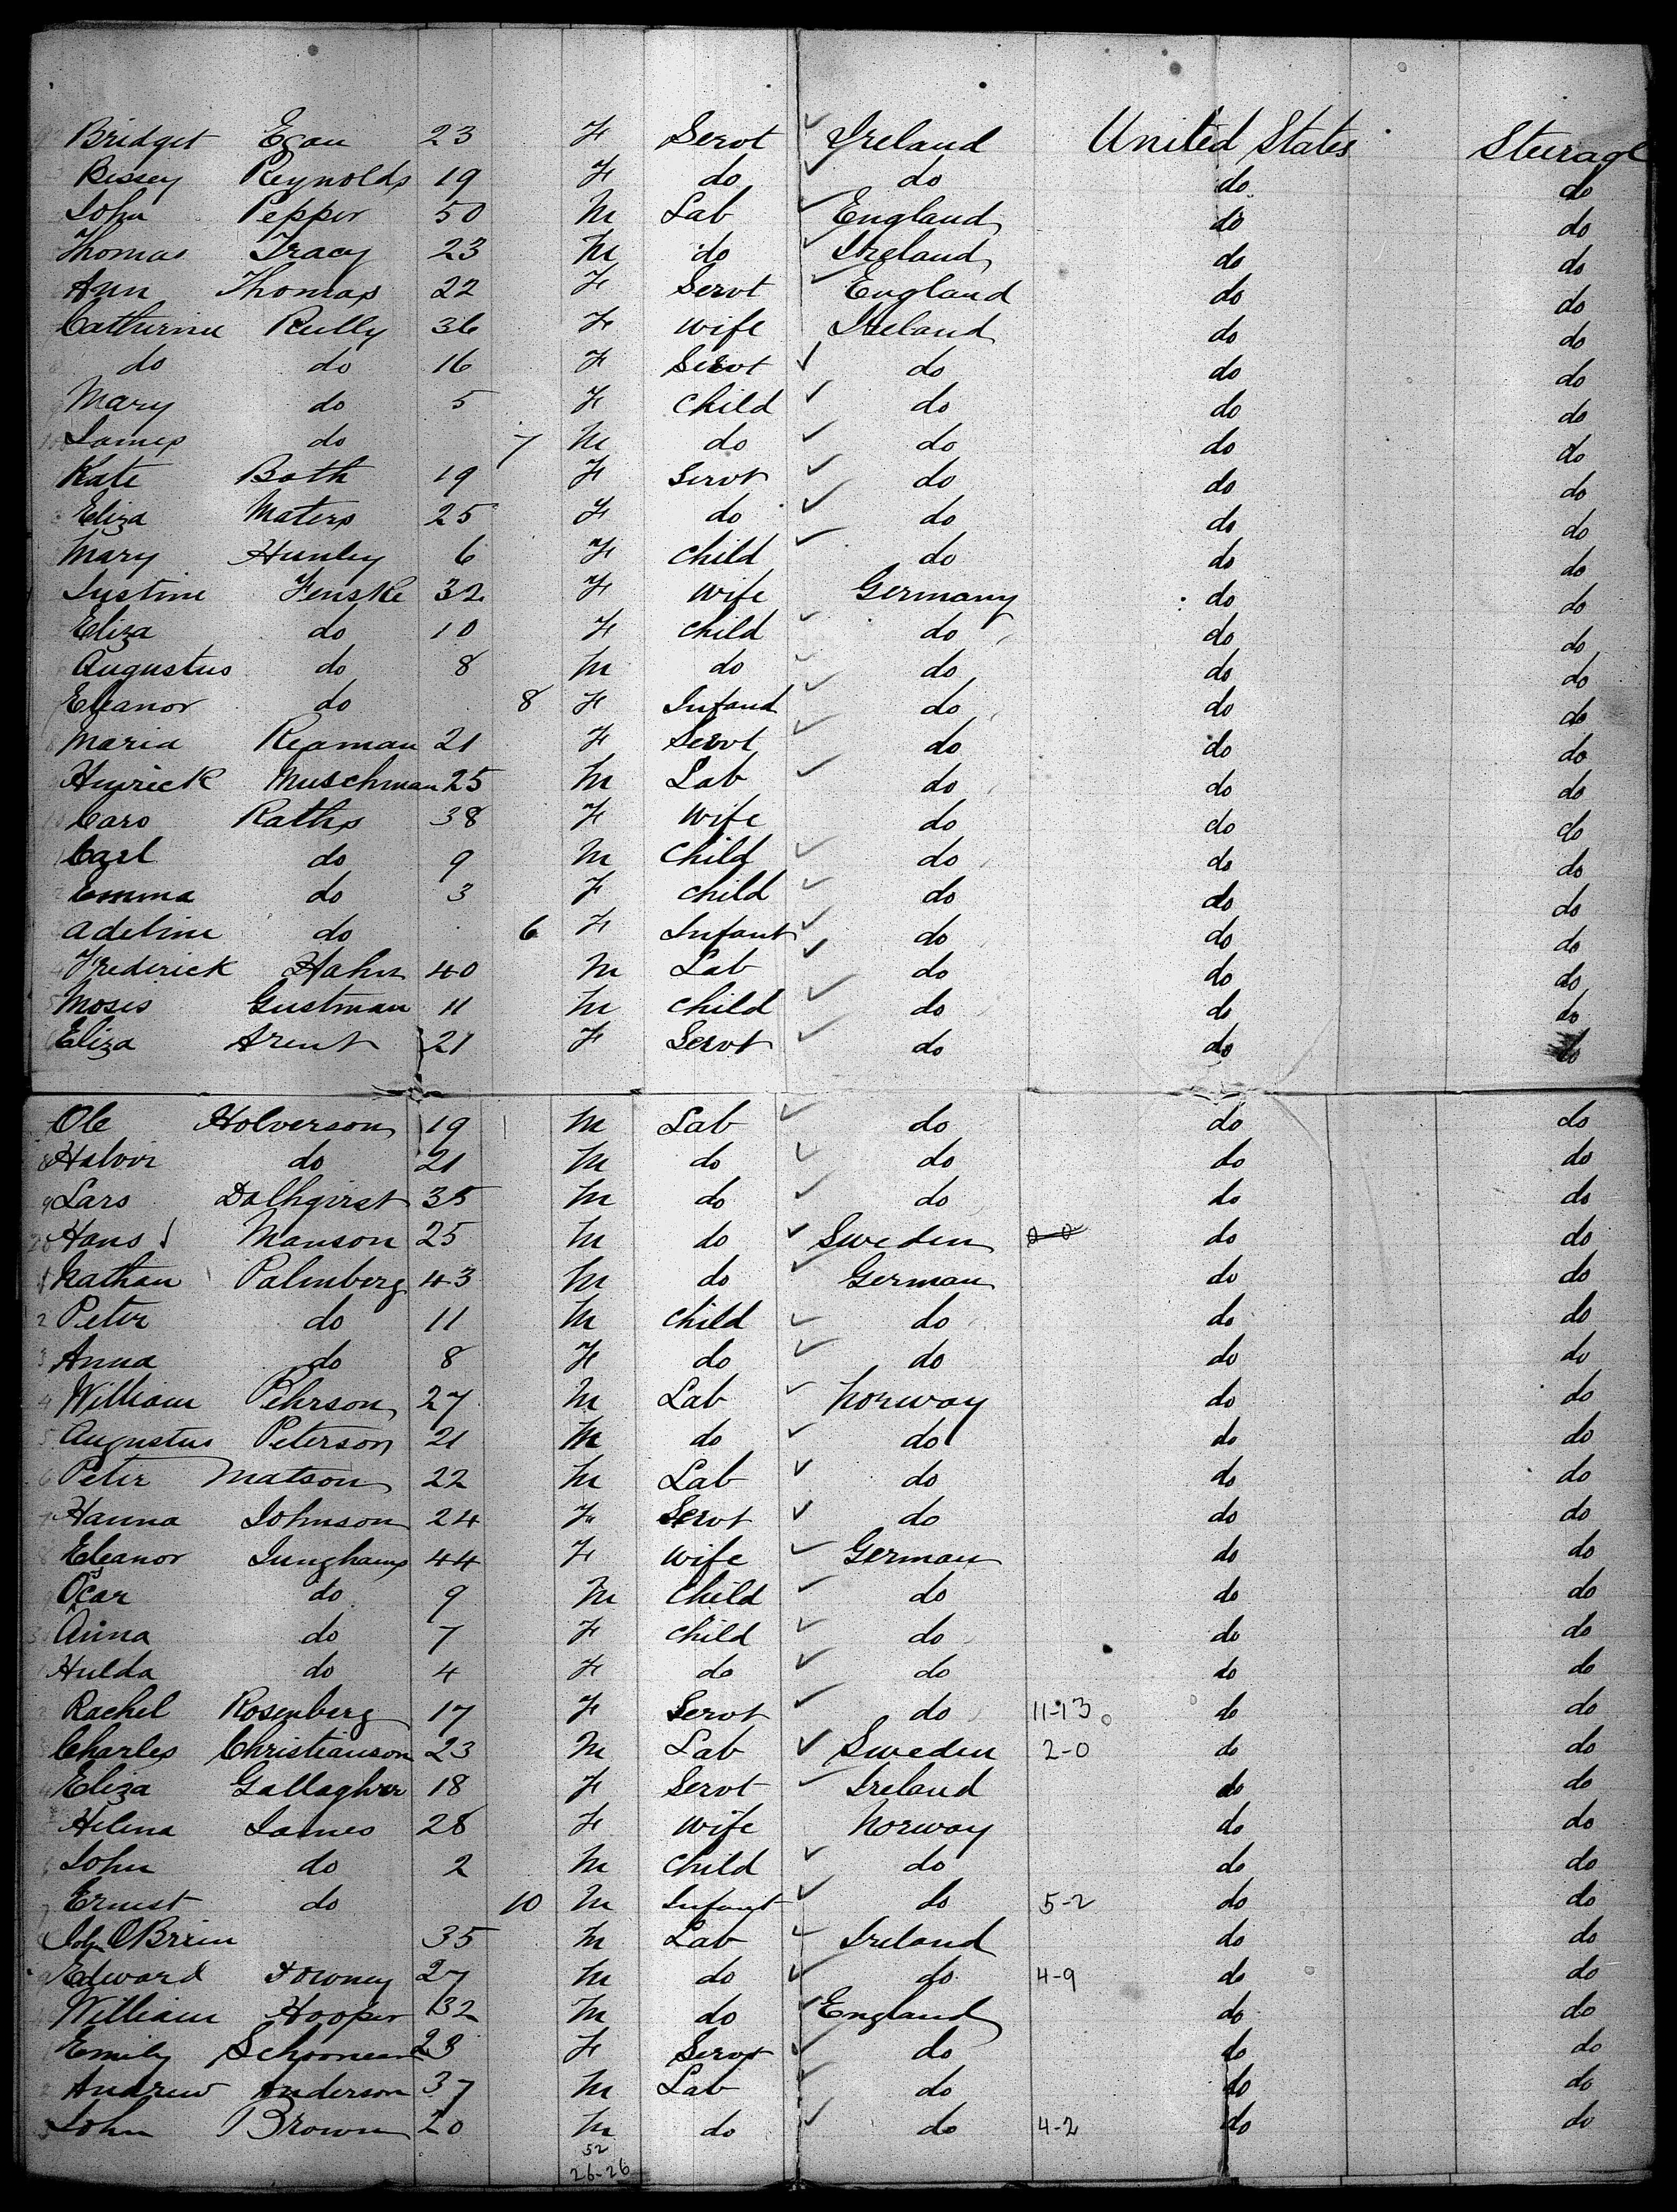 Bridget Egan 23 F Servt Ireland United States Steerage
Bessey Reynolds 19 F do do do do
John Pepper 50 M Lab England do do
Thomas Tracy 23 M do Ireland do do
Ann Thomas 22 F Servt England do do
Catherine Reilly 36 F wife Ireland do do
do do 16 F Servt do do do
Mary do 5 F child do do do
James do 7 M do do do do
Kate Both 19 F Servt do do do
Eliza Maters 25 F do do do do
Mary Hunley 6 F child do do do
Justine Fenske 32 F wife Germany do do
Eliza do 10 F child do do do
Augustus do 8 M do do do do
Eleanor do 8 F Infand do do do
Maria Reaman 21 F Servt do do do
Hinrick Muschman 25 M Lab do do do
Caro Raths 38 F wife do do do
Carl do 9 M child do do do
Emma do 3 F child do do do
Adeline do 6 F Infant do do do
Frederick Hahn 40 M Lab do do do
Moses Gustman 11 M child do do do
Eliza Arent 21 F Servt do do do
Ole Holverson 19 M Lab do do do
8 Halvor do 21 M do do do do
9 Lars Dalhqirst 35 M do do do do
Hans Manson 25 M do Sweden do do
1 Nathan Palmberg 43 M do German do do
2 Peter do 11 M child do do do
3 Anna do 8 F do do do do
4 William Pehrson 27 M Lab Norway do do
5 Augustus Peterson 21 M do do do do
6 Peter Matson 22 M Lab do do do
7 Hanna Johnson 24 F Servt do do do
8 Eleanor Junghans 44 F wife German do do
9 Oscar do 9 M child do do do
Anna do 7 F child do do do
1 Hulda do 4 F do do do do
2 Rachel Rosenberg 17 F Servt do 11-13 do do
3 Charles Christianson 23 M Lab Sweden 2-0 do do
4 Eliza Gallagher 18 F Servt Ireland do do
Helena James 28 F wife Norway do do
6 John do 2 M child do do do
7 Ernest do 10 M Infant do 5-2 do do
John OBrien 35 M Lab Ireland do do
9 Edward Downey 27 M do do 4-9 do do
William Hooper 32 M do England do do
Emily 23 F Servt do do do
2 Andrew Anderson 37 M Lab do do do
3 John Brown 20 M do do 4-2 do do
52
26-26